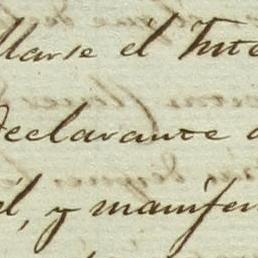 llarse el Inte
declarante a
él, y manifes